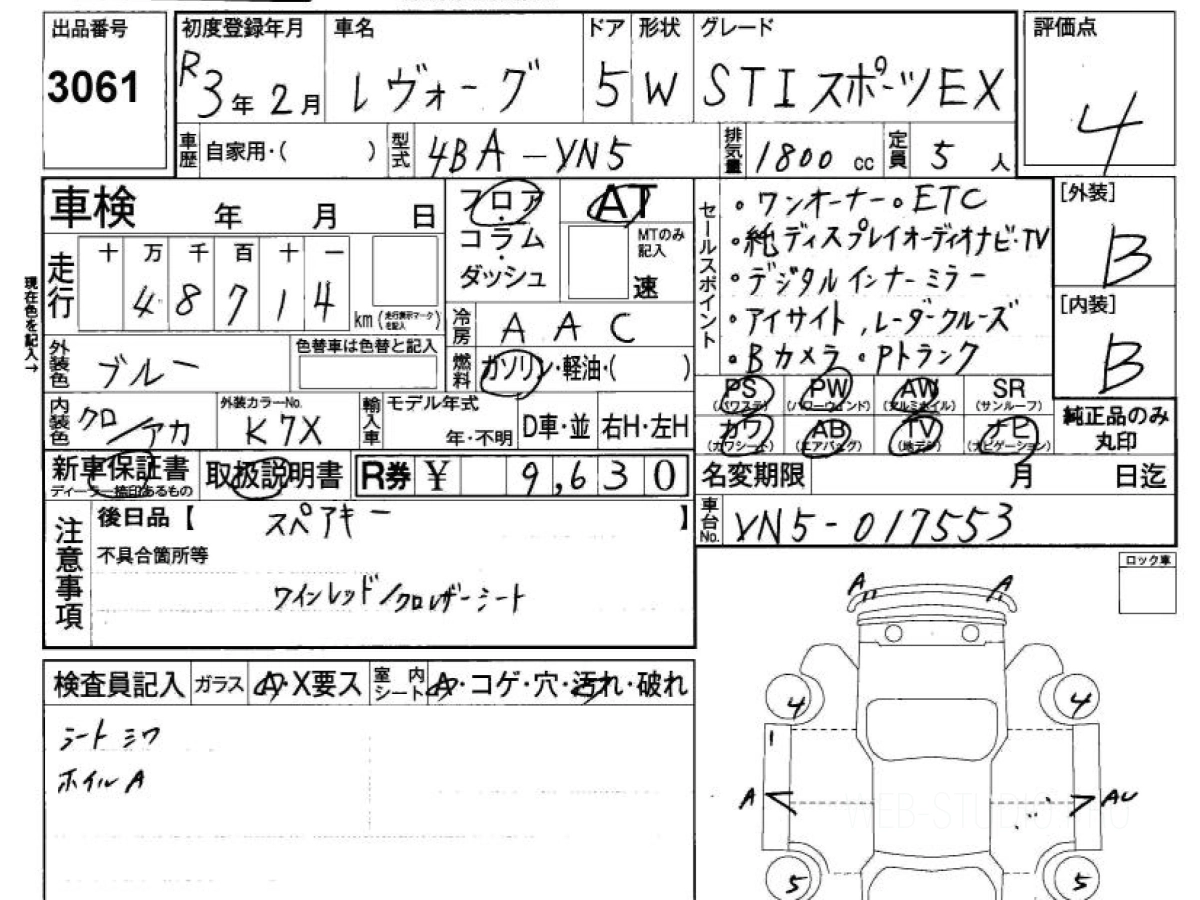 出品番号 初度登録年月 車名 ドア 形状 グレード 評価点
3061 R3年2月 レヴォーグ 5 W STIスポーツEX 4
車歴 自家用・( ) 型式 4BA-VN5 排気量 1800 cc 定員 5 人
車検 年 月 日
フロア AT
コラム
ダッシュ
MTのみ記入
速
セールスポイント
・ワンオーナー・ETC
・純ディスプレイオーディオナビ・TV
・デジタルインナーミラー
・アイサイト,レーダークルーズ
・Bカメラ・Pトランク
[外装]
B
[内装]
B
現在色を記入→
走行 十 万 千 百 十 一
4 8 7 1 4 km (走行表示マークを記入)
冷房 A A C
外装色 ブルー 色替車は色替と記入
燃料 ガソリン・軽油・( )
PS (パワステ) PW (パワーウィンド) AW (アルミホイル) SR (サンルーフ)
カワ (カワシート) AB (エアバッグ) TV (地デジ) ナビ (ナビゲーション)
純正品のみ
丸印
内装色 クロ/アカ 外装カラーNo. K7X
輸入車 モデル年式 年・不明 D車・並 右H・左H
新車保証書 ディーラー捺印あるもの 取扱説明書 R券 ¥ 9,630
名変期限 月 日迄
車台No. VN5-017553
注意事項
後日品【 スペアキー 】
不具合箇所等
ワインレッド/クロレザーシート
ロック車
検査員記入 ガラス A・X要ス 室内シート A・コゲ・穴・汚れ・破れ
シートシワ
ホイルA
A A
4 4
1
A AU
5 5
WEB-STUDIO.RU